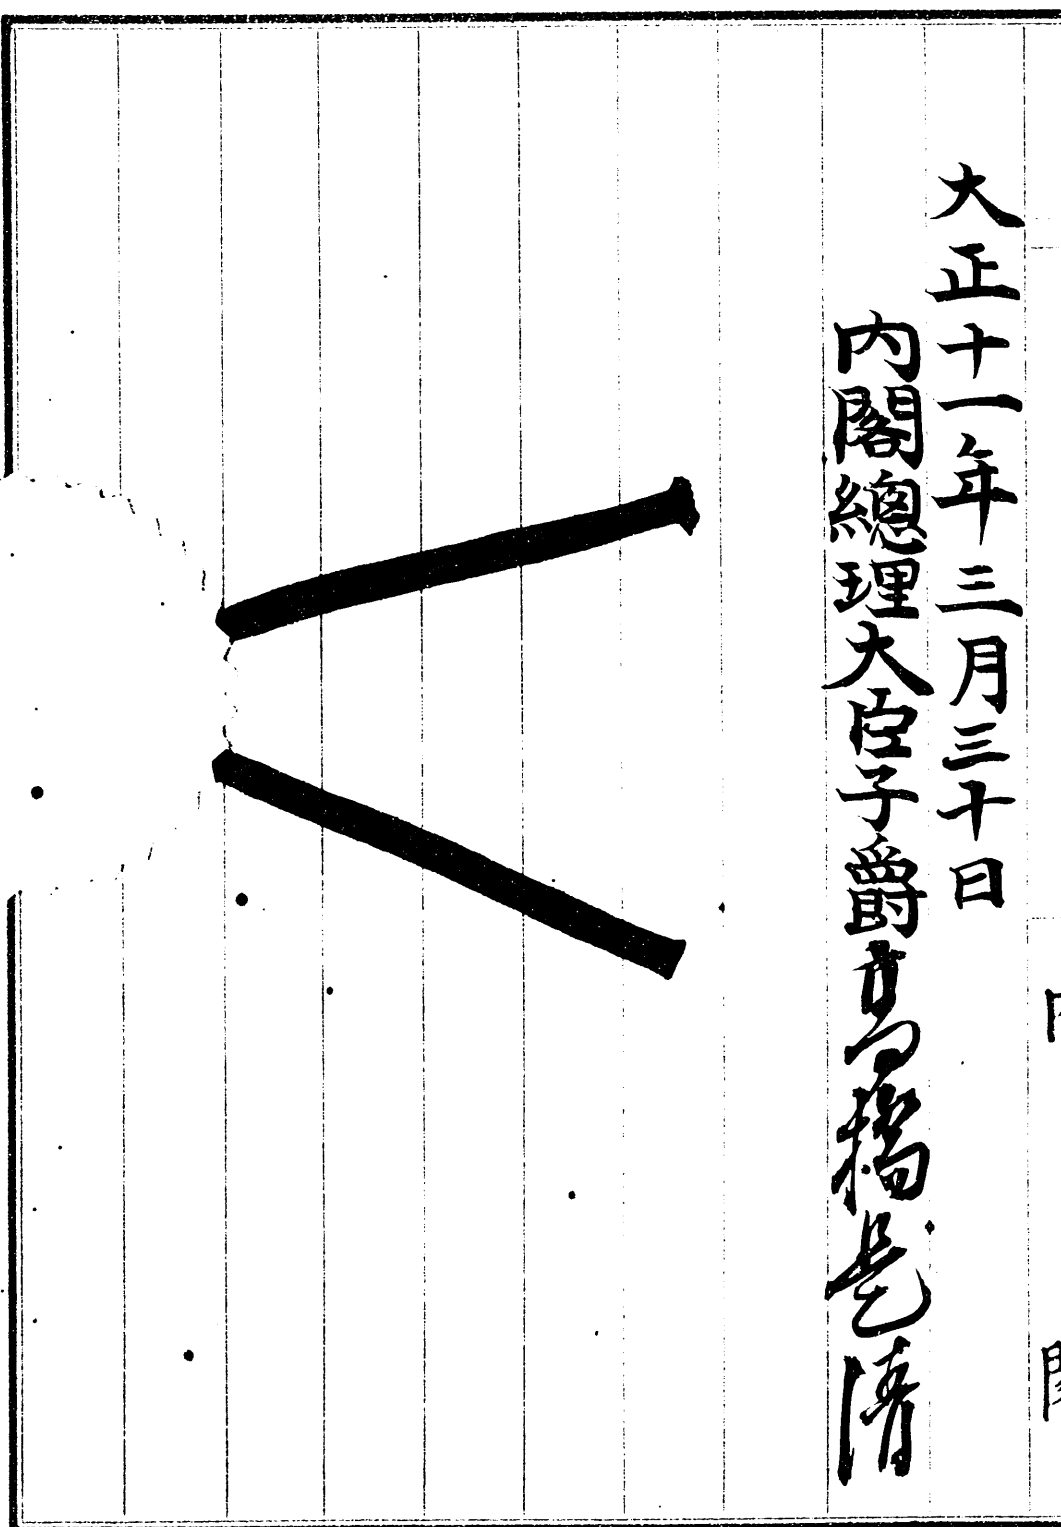 大正十一年三月三十日
内閣總理大臣子爵高橋是清